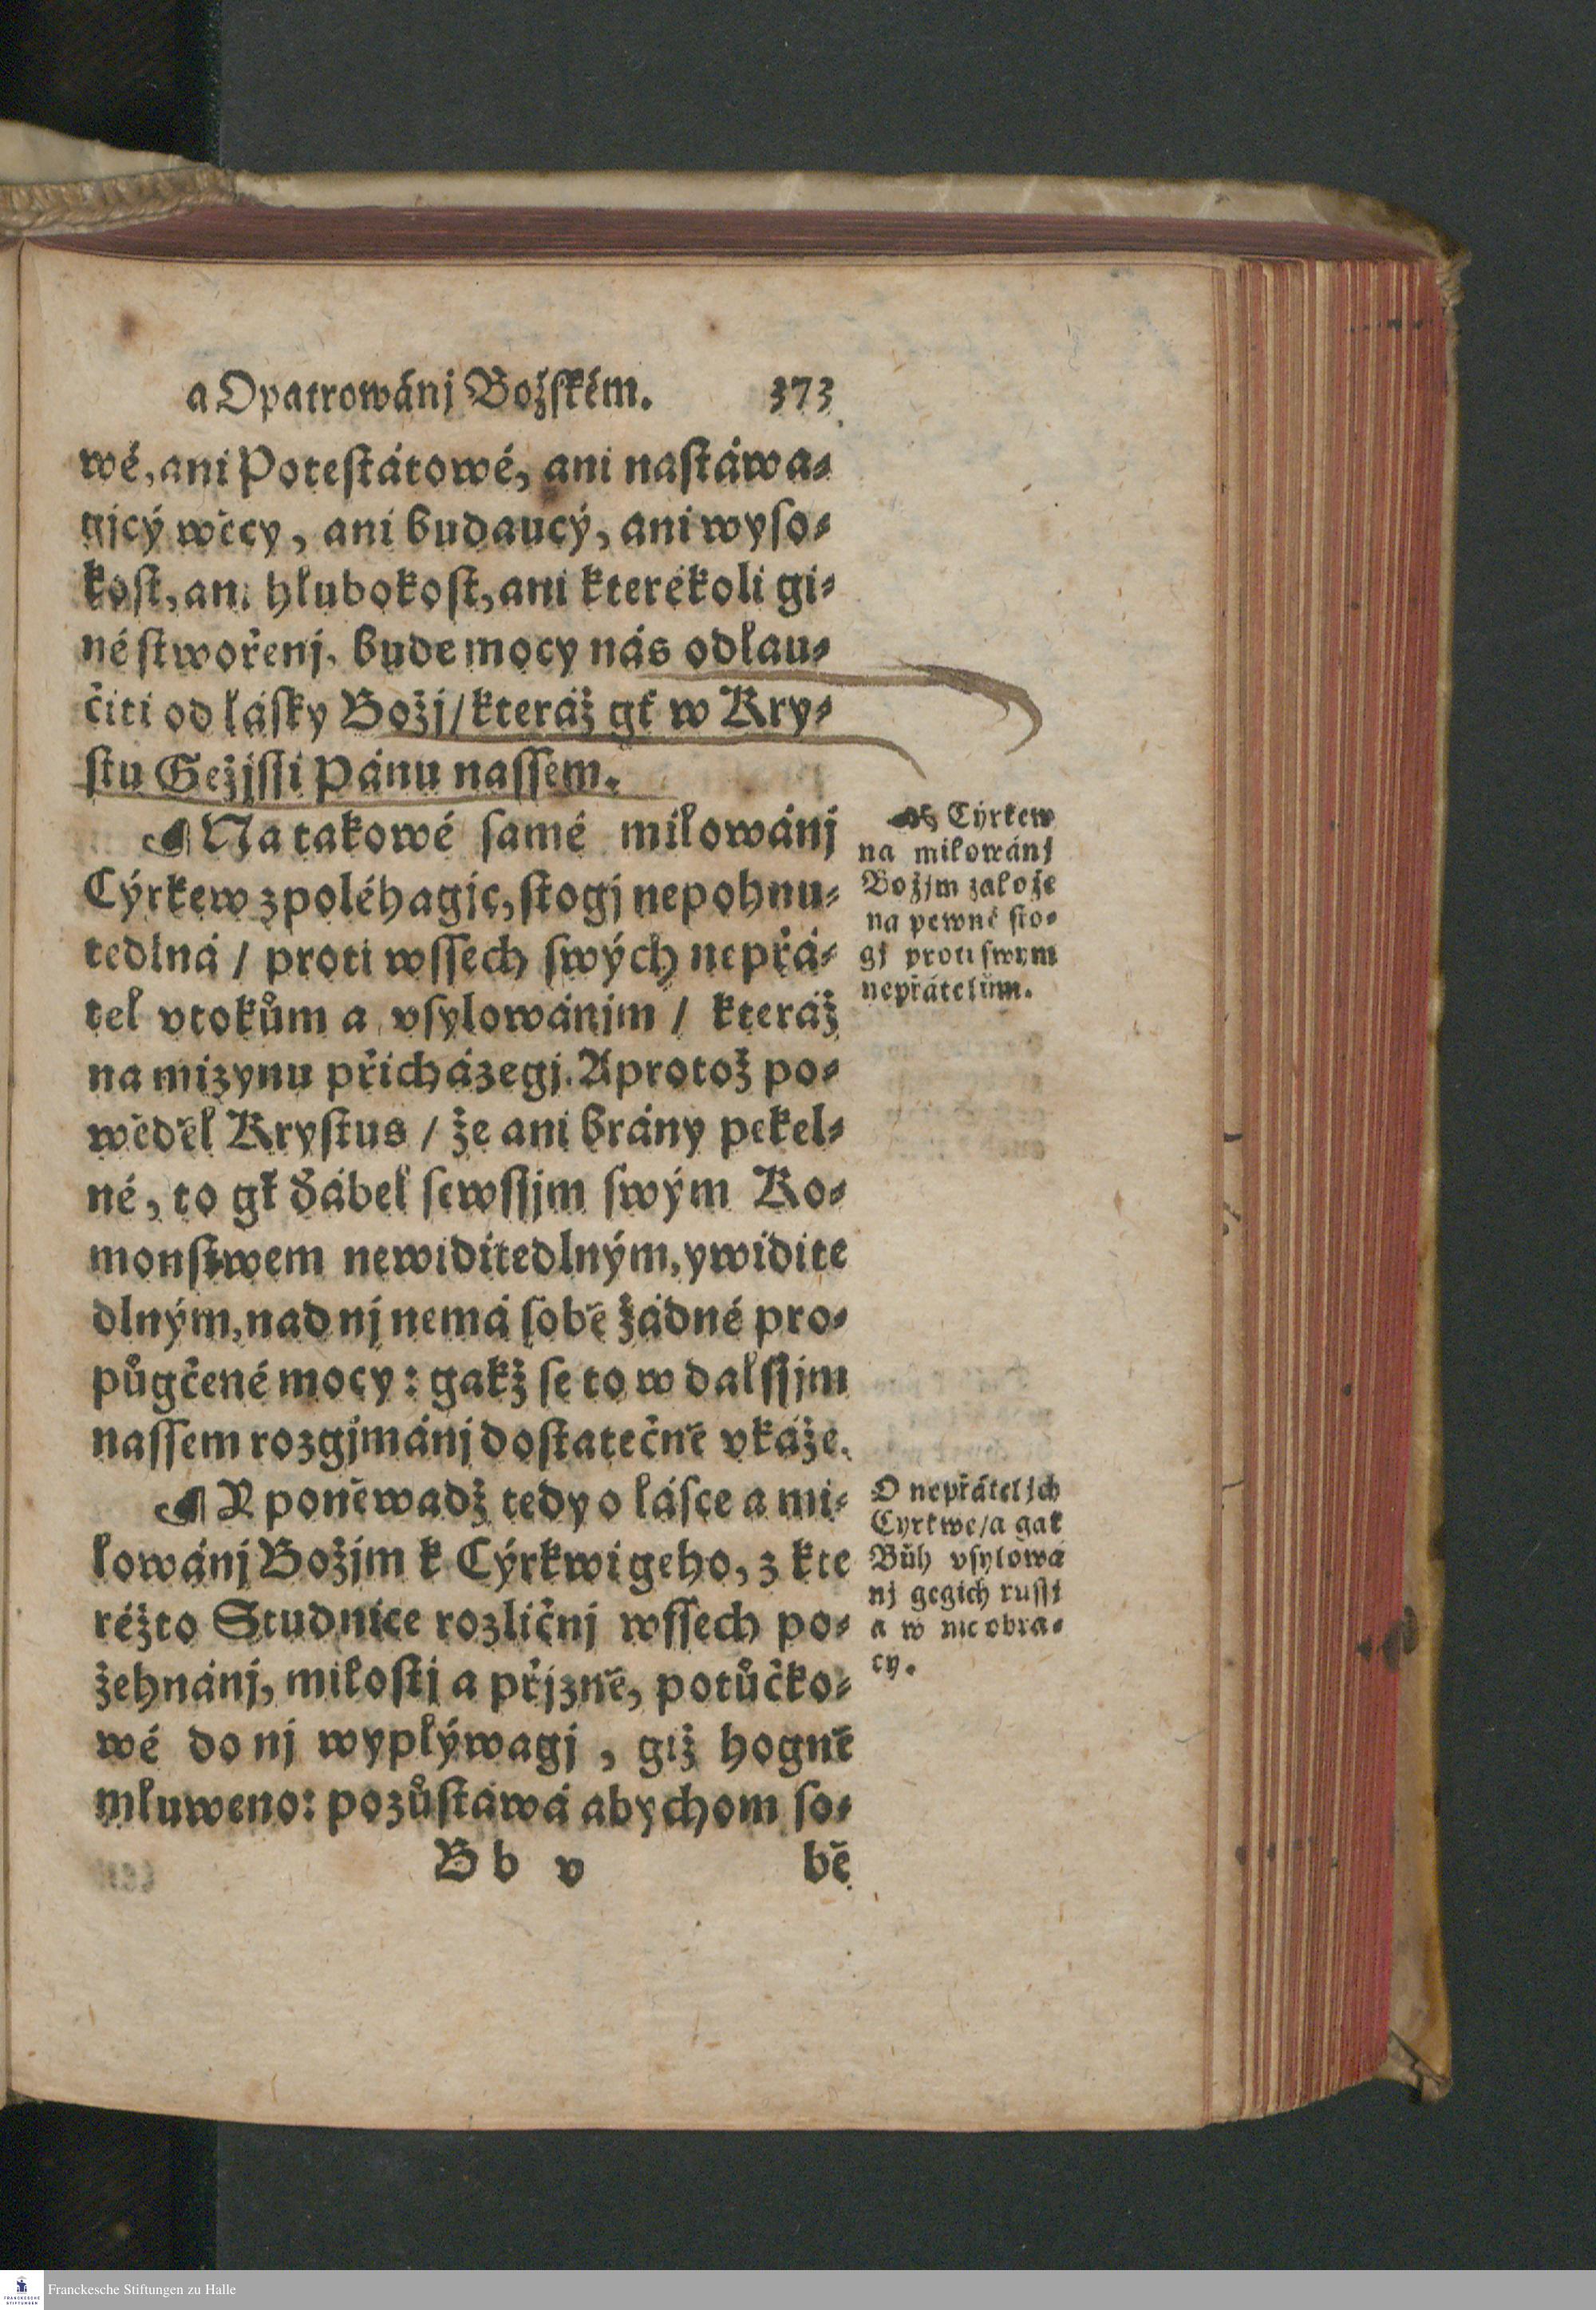 a Opatrowánj Božſkém. 373
wé, ani Poteſtátowé, ani naſtáwa-
gjcý wěcy, ani budaucý, ani wyſo-
koſt, ani hlubokoſt, ani kterékoli gi-
né ſtwořenj, bude mocy nás odlau-
čiti od láſky Božj / kteráž gt w Kry-
ſtu Gežjſſi Pánu naſſem.
¶ Na takowé ſamé milowánj
Cýrkew zpoléhagjc, ſtogj nepohnu-
tedlná / proti wſſech ſwých nepřá-
tel vtokům a vſylowánjm / kteráž
na mizynu přicházegj. A protož po-
wěděl Kryſtus / že ani brány pekel-
né, to gt ďábel ſewſſjm ſwým Ko-
monſtwem newiditedlným, y widite
dlným, nad nj nemá ſobě žádné pro-
půgčené mocy: gakž ſe to w dalſſjm
naſſem rozgjmánj doſtatečně vkáže.
¶ A poněwadž tedy o láſce a mi-
lowánj Božjm k Cýrkwi geho, z kte
réžto Studnice rozličnj wſſech po-
žehnánj, miloſtj a přjzně, potůčko-
wé do nj wyplýwagj, giž hogně
mluweno: pozůſtáwá abychom ſo-
B b v bě
Cýrkew
na milowánj
Božjm založe
na pewně ſto-
gj proti ſwým
nepřátelům.
O nepřáteljch
Cýrkwe / a gak
Bůh vſylowá
nj gegich ruſſj
a w nic obra-
cý.
Franckesche Stiftungen zu Halle